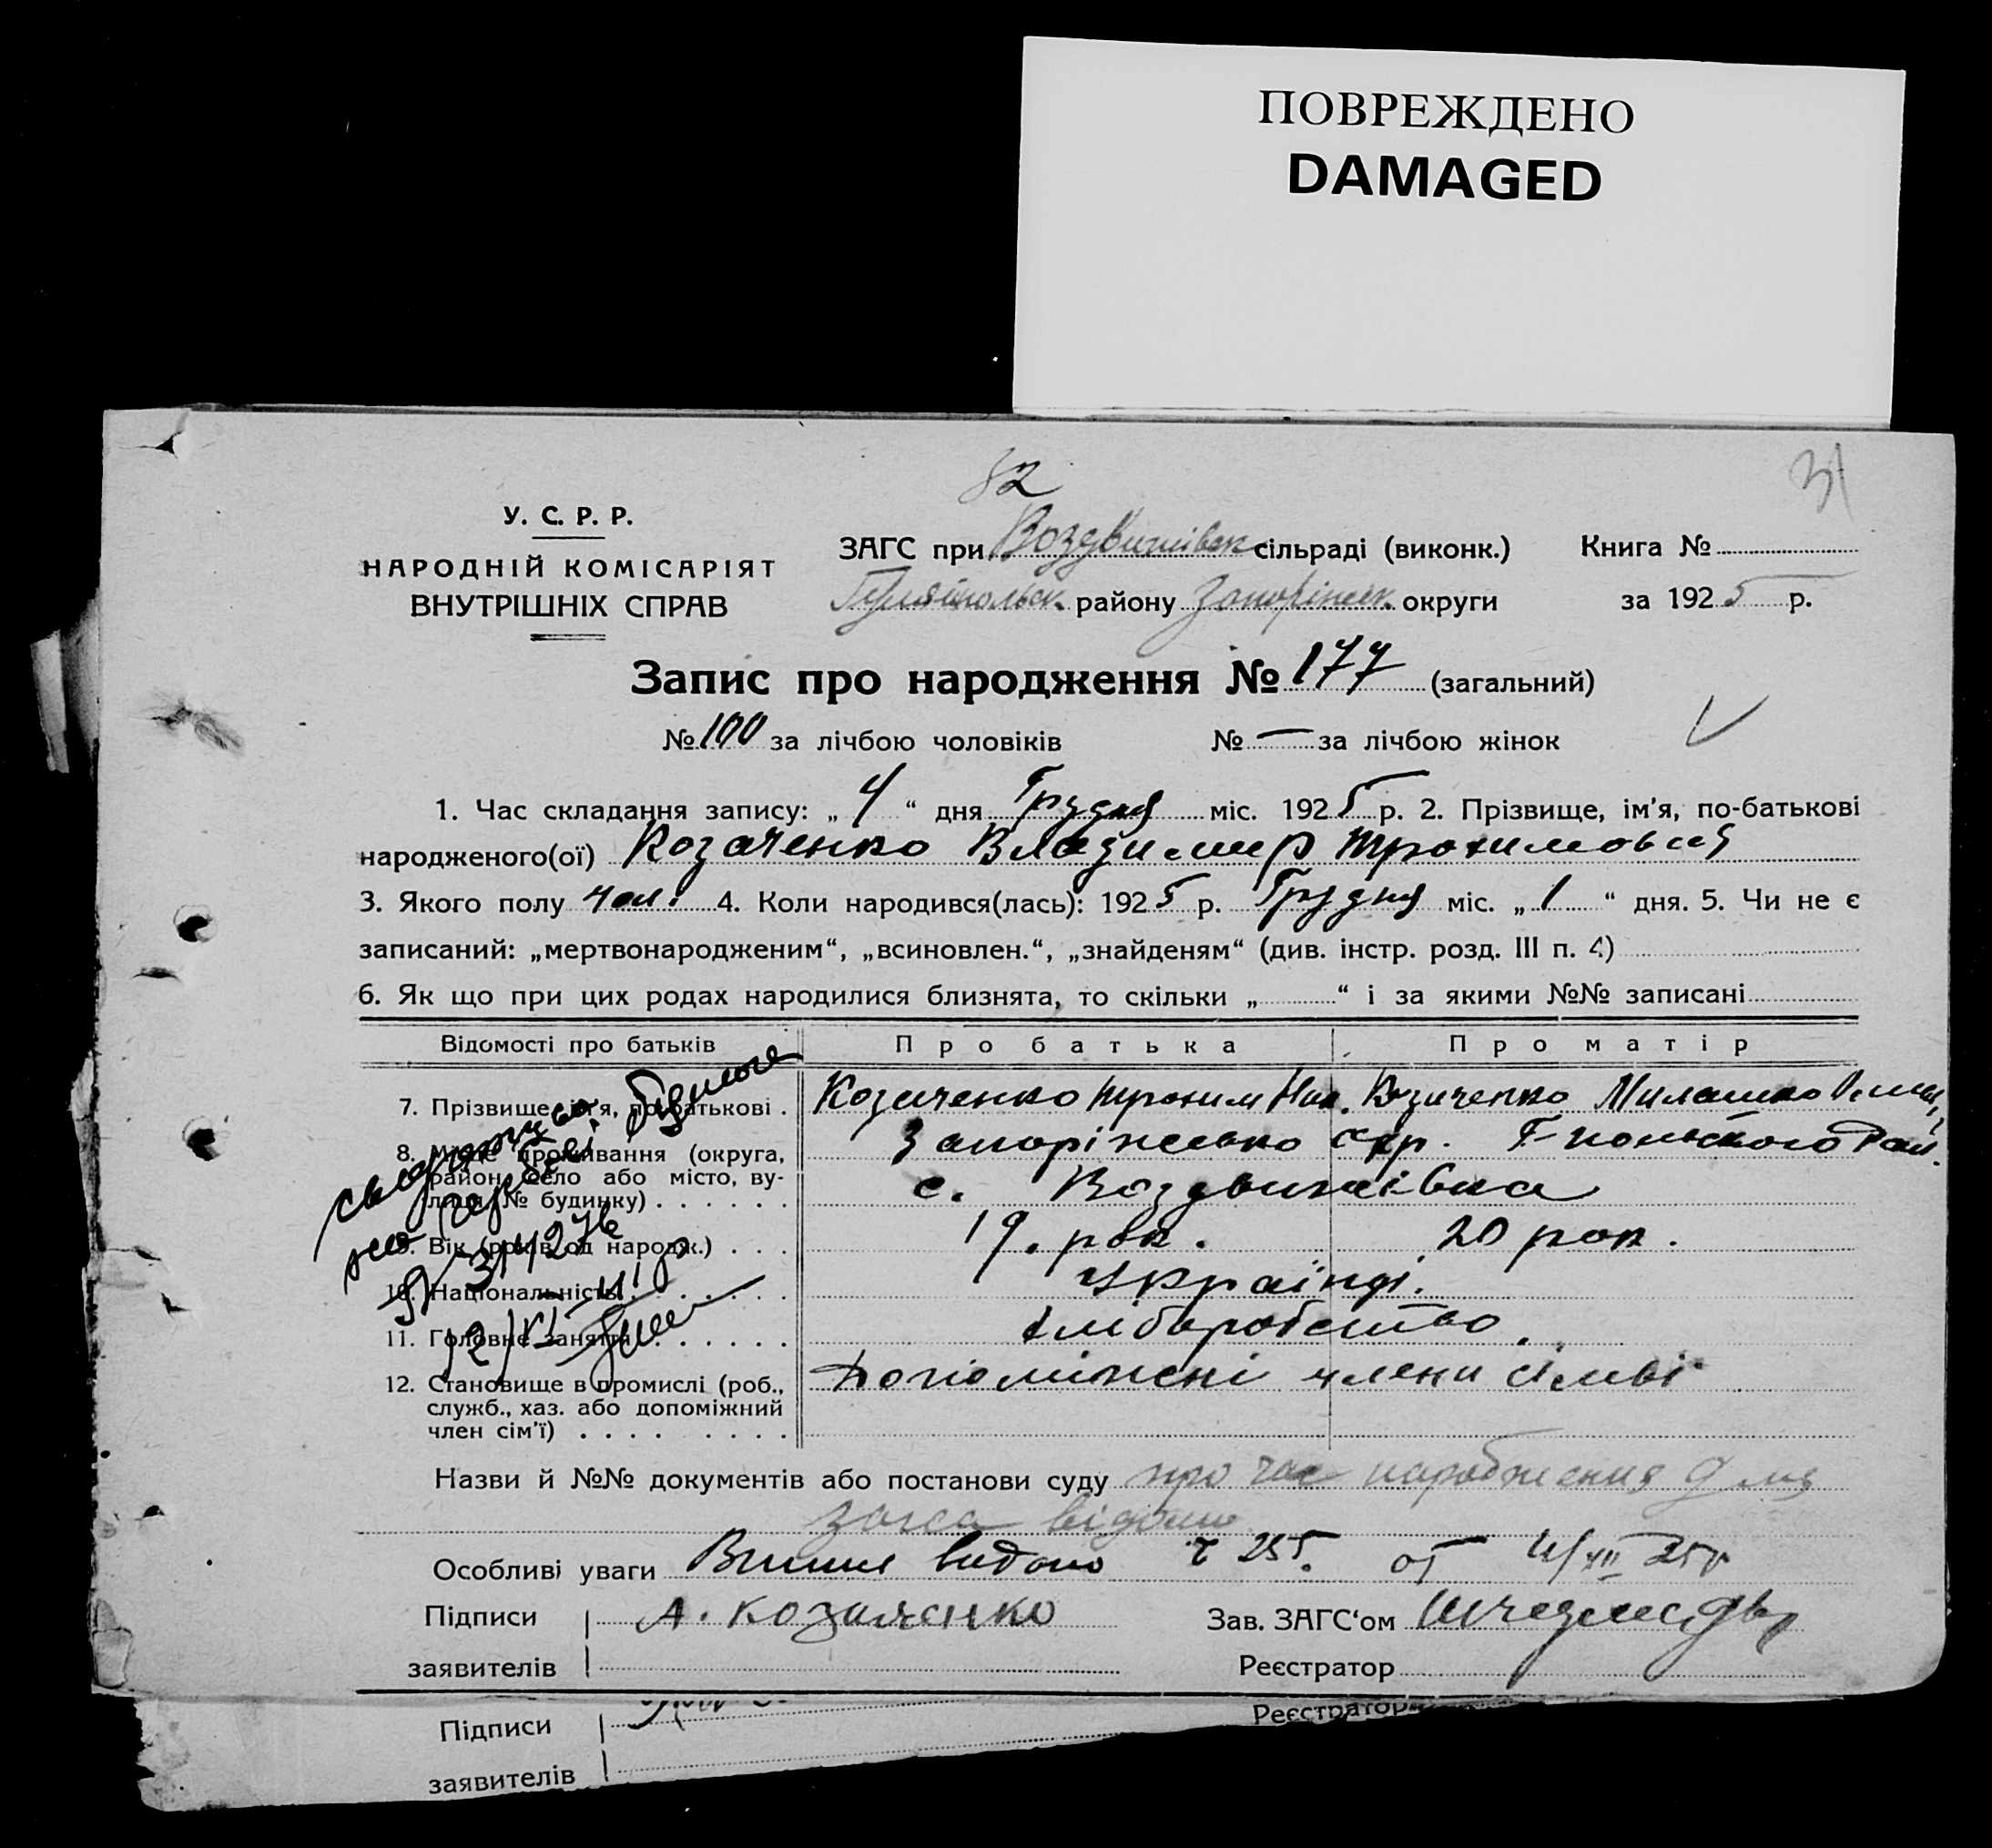 ПОВРЕЖДЕНО
DAMAGED
82
31
У. С. Р. Р.
НАРОДНІЙ КОМІСАРІЯТ
ВНУТРІШНІХ СПРАВ
ЗАГС при Воздвижівськ сільраді (виконк.) Книга №
Гуляйпольск. району Запоріжськ. округи за 1925 р.
Запис про народження № 177 (загальний)
№ 100 за лічбою чоловіків № — за лічбою жінок
1. Час складання запису: „4“ дня Грудня міс. 1925 р. 2. Прізвище, ім’я, по-батькові
народженого(ої) Козаченко Владимир Трохимович
3. Якого полу чол. 4. Коли народився(лась): 1925 р. Грудня міс. „1“ дня. 5. Чи не є
записаний: „мертвонародженим“, „всиновлен.“, „знайденям“ (див. інстр. розд. III п. 4)
6. Як що при цих родах народилися близнята, то скільки „ “ і за якими №№ записані
Відомості про батьків Про батька Про матір
7. Прізвище, ім’я, по-батькові . Козаченко Трохим Ник. Козаченко
8. Місце проживання (округа, Запоріжсько окр. Г-польского Рай.
район, село або місто, ву-
лиця, № будинку) . . . . . . с. Воздвижівка
9. Вік (років од народж.) . . . 19. рок. 20 рок.
10. Національність . . . . . . . Українці.
11. Головне заняття . . . . . . . хліборобство.
12. Становище в промислі (роб., Допоміжні члени сімьї
служб., хаз. або допоміжний
член сім’ї) . . . . . . . .
Назви й №№ документів або постанови суду про час народження для
загса відомо
Особливі уваги Випис видано ч 255. от 4/XII 25 р
Підписи А. Козаченко Зав. ЗАГС‘ом
заявителів Реєстратор
Підписи Реєстратор
заявителів